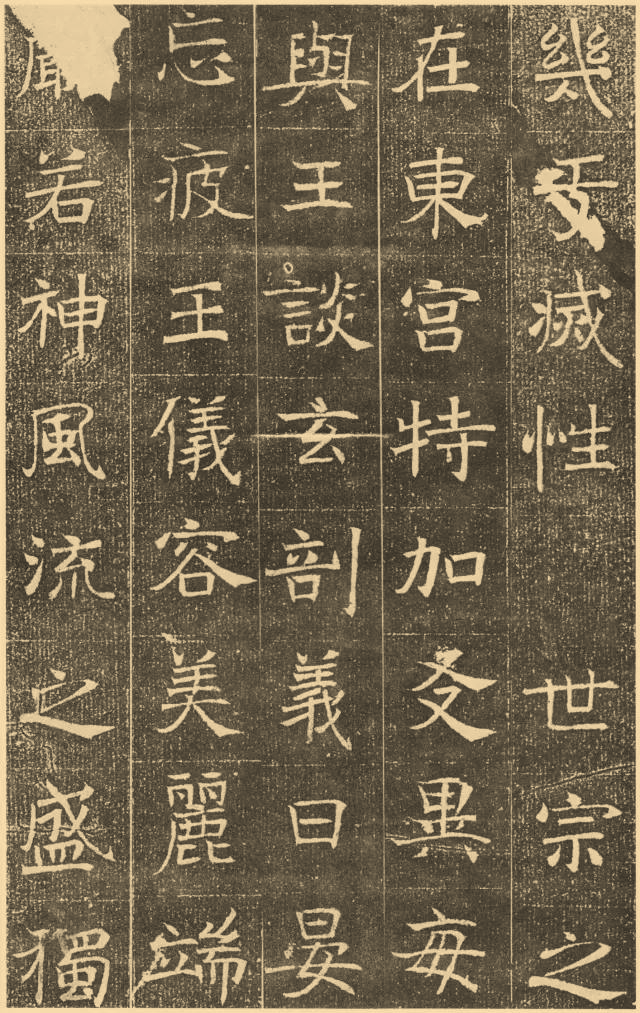 幾于滅性 世宗之
在東宮特加友異每
與王談玄剖義日晏
忘疲王儀容美麗端
嚴若神風流之盛獨